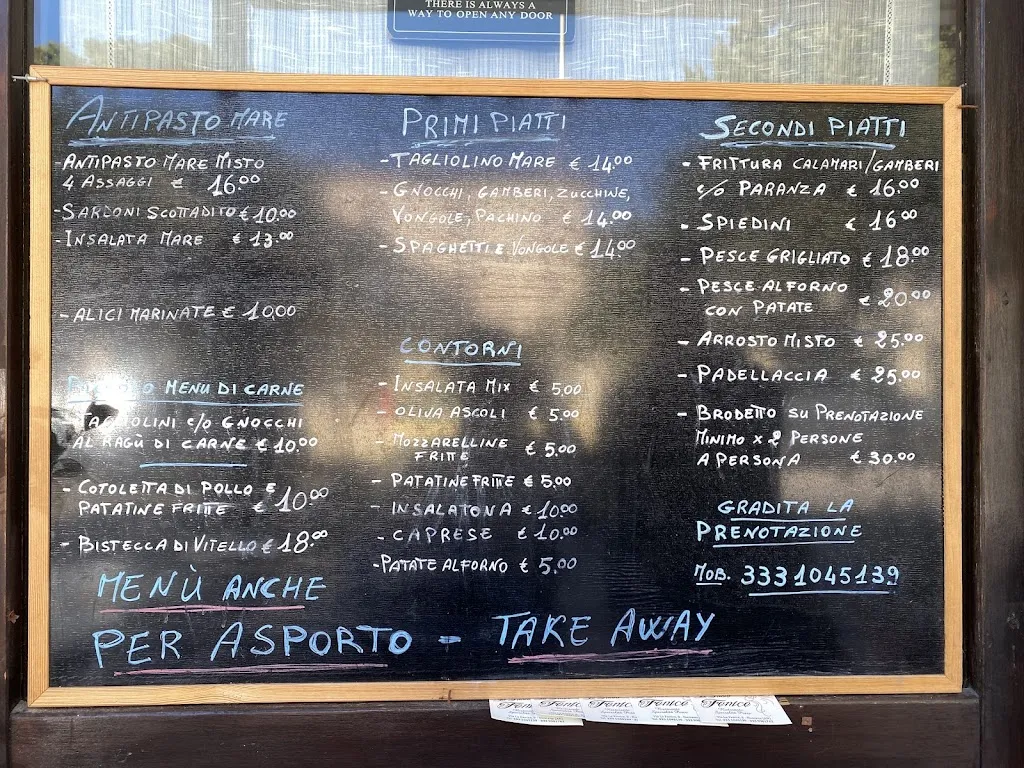 THERE IS ALWAYS A
WAY TO OPEN ANY DOOR
ANTIPASTO MARE
- ANTIPASTO MARE MISTO
4 ASSAGGI € 16.00
- SARDONI SCOTTADITO € 10.00
- INSALATA MARE € 13.00
- ALICI MARINATE € 10.00
MENU DI CARNE
TAGLIOLINI c/o GNOCCHI
AL RAGÙ DI CARNE € 10.00
- COTOLETTA DI POLLO E
PATATINE FRITTE € 10.00
- BISTECCA DI VITELLO € 18.00
PRIMI PIATTI
- TAGLIOLINO MARE € 14.00
- GNOCCHI, GAMBERI, ZUCCHINE,
VONGOLE, PACHINO € 14.00
- SPAGHETTI E VONGOLE € 14.00
CONTORNI
- INSALATA MIX € 5,00
- OLIVA ASCOLI € 5,00
- MOZZARELLINE
FRITTE € 5.00
- PATATINE FRITTE € 5.00
- INSALATONA € 10.00
- CAPRESE € 10.00
- PATATE AL FORNO € 5,00
SECONDI PIATTI
- FRITTURA CALAMARI/GAMBERI
c/o PARANZA € 16.00
- SPIEDINI € 16.00
- PESCE GRIGLIATO € 18.00
- PESCE AL FORNO
CON PATATE € 20.00
- ARROSTO MISTO € 25.00
- PADELLACCIA € 25.00
- BRODETTO SU PRENOTAZIONE
MINIMO x 2 PERSONE
A PERSONA € 30.00
GRADITA LA
PRENOTAZIONE
MOB. 3331045139
MENÙ ANCHE
PER ASPORTO - TAKE AWAY